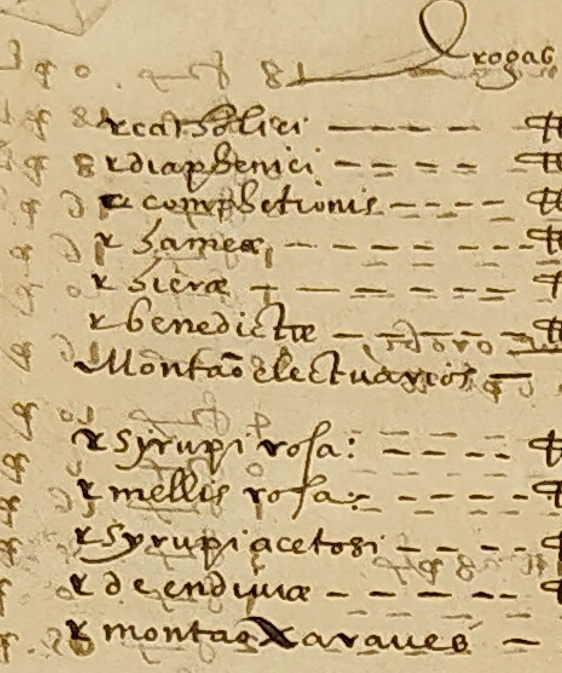 Drogas
℞ catholici
℞ diaphenici
℞ comphetionis
℞ hameæ
℞ hieræ
℞ benedictæ
Montão electuarios
℞ Syrupi rosa:
℞ mellis rosa:
℞ Syrupi acetosi
℞ de endiuiæ
℞ montao Xaraues